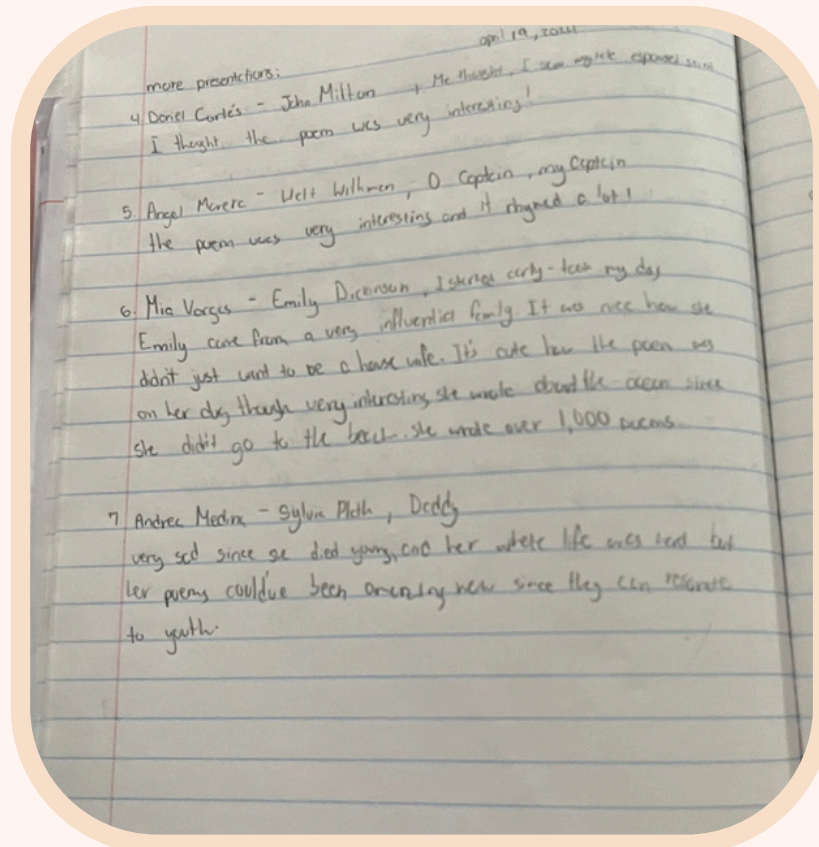 april 19, 2024
more presentations:
4 Daniel Cortés - John Milton, Me thought, I saw my late espoused saint
I thought the poem was very interesting!
5. Angel Morera - Walt Withman, O Captain, my Captain
the poem was very interesting and it rhymed a lot!
6. Mia Vargas - Emily Dickenson, I started early-took my dog
Emily came from a very influential family. It was nice how she
didn't just want to be a house wife. It's cute how the poem was
on her dog though very interesting she wrote about the ocean since
she didn't go to the beach. she wrote over 1,000 poems.
7 Andrea Medina - Sylvia Plath, Daddy
very sad since se died young, and her whole life was hard but
her poems could've been amazing new since they can resonate
to youth.